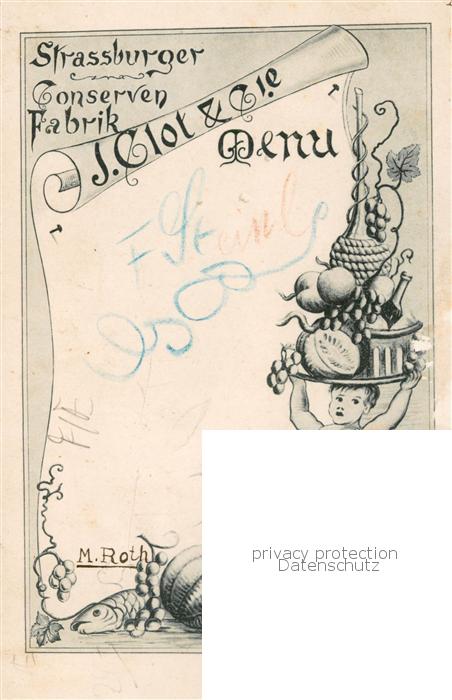 Strassburger
Conserven
Fabrik
J. Clot & Cie
Menu
F St einl
F/E
M. Roth
privacy protection
Datenschutz